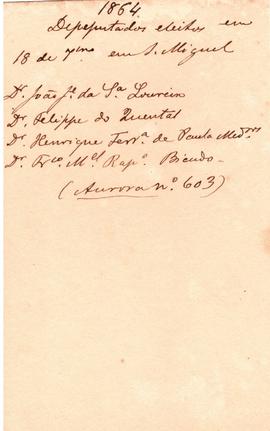 1864
Depeputados eleitos em
18 de 7bro em S. Miguel
Dr. João Je. da Sa. Loureiro
Dr. Felippe do Quental
Dr. Henrique Ferra. de Paula Medros
Dr. Frco. Mel. Rapo. Bicudo
(Aurora no. 603)